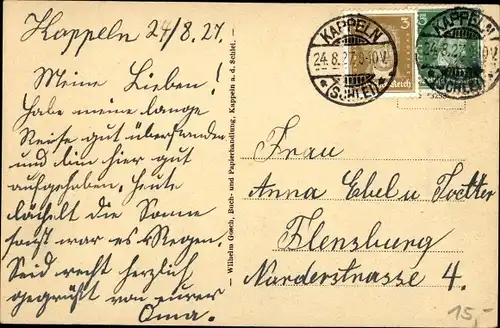 Kappeln 24/8.27.
Meine Lieben!
Habe meine lange
Reise gut überstanden
und bin hier gut
aufgehoben. Heute
lächelt die Sonne
sonst war es Regen.
Seid recht herzlich
gegrüßt von eurer
Oma.
Wilhelm Gosch, Buch- und Papierhandlung, Kappeln a. d. Schlei.
KAPPELN
24.8.27.
(SCHLEI)
3
Reich
5
KAPPELN
24.8.27.
(SCHLEI)
Frau
Anna Ebel u Tochter
Flensburg
Norderstrasse 4.
15,-